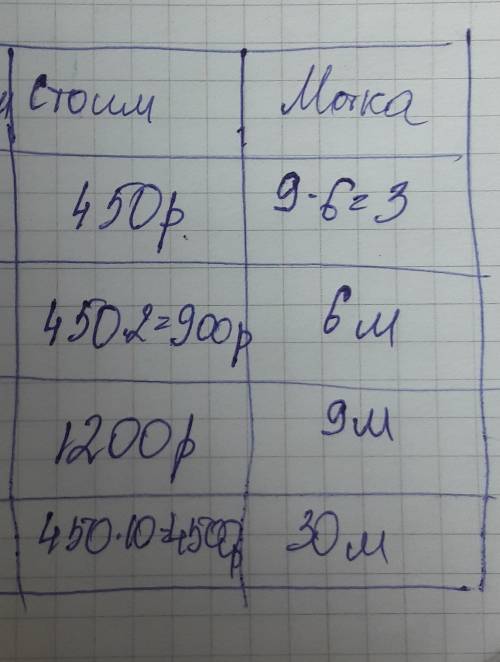 Стоим Мотка
450р. 9-6=3
450.2=900р 6м
1200р 9м
450·10=4500р 30м